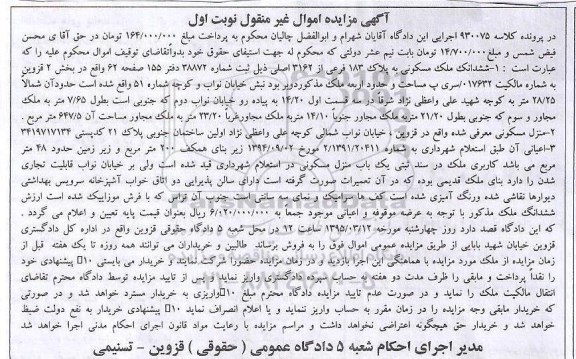 آگهی مزایده اموال غیر منقول نوبت اول
در پرونده کلاسه ۹۳۰۰۷۵ اجرایی این دادگاه آقایان شهرام و ابوالفضل چالیان محکوم به پرداخت مبلغ ۱۶۴/۰۰۰/۰۰۰ تومان در حق آقا ی محسن
فیض شمس و مبلغ ۱۴/۷۰۰/۰۰۰ تومان بابت نیم عشر دولتی که محکوم له جهت استیفای حقوق خود بدوا تقاضای توقیف اموال محکوم علیه را که
عبارت است : ۱- ششدانک ملک مسکونی به پلاک ۱۸۳ فرعی از ۳۱۶۲ اصلی ذیل ثبت شماره ۳۸۸۷۲ دفتر ۱۵۵ صفحه ۶۲ واقع در بخش ۲ قزوین
به شماره مالکیت ۰۱۷۶۳۲/سری پ مساحت و حدود اربعه ملک مذکور دوبر نبش خیابان نواب و کوچه شماره ۵۱ واقع شده است حدود آن شمالا
۲۸/۲۵ متر به کوچه شهید علی واعظی نژاد شرقا در سه قسمت اول ۱۴/۲۰ به پیاده رو خیابان نواب دوم که جنوبی است بطول ۷/۶۵ متر به ملک
مجاور و سوم که جنوبی بطول ۲۱/۲۰ متر به ملک مجاور جنوبا ۱۴/۱۰ متر به ملک مجاور غربا ۲۳/۲۰ متر به ملک مجاور مساحت آن ۶۴۷/۵ متر مربع .
۲-منزل مسکونی معرفی شده واقع در قزوین ، خیابان نواب شمالی کوچه علی واعظی نژاد اولین ساختمان جنوبی پلاک ۲۱ کدپستی ۳۴۱۹۷۱۷۱۳۴
۳-اعیانی آن طبق استعلام شهرداری به شماره ۲/۱۳۹۱/۲۰۴۱۱ مورخ ۱۳۹۴/۰۹/۰۲ زیر بنای همکف ۲۰۰ متر مربع و زیر زمین حدود ۴۸ متر
مربع می باشد کاربری ملک در سند ثبتی یک باب منزل مسکونی در استعلام شهرداری قید شده است ولی بر خیابان نواب قابلیت تجاری
شدن را دارد بنای ملک قدیمی بوده که در آن تعمیرات صورت گرفته است دارای سالن پذیرایی دو اتاق خواب آشپزخانه سرویس بهداشتی
دیوارها نقاشی شده ورنگ آمیزی شده است دارای سرامیک و نمای سیمانی است در جنوب آن تراس که با فرش موزاییک شده است ارزش
ششدانگ ملک مذکور با توجه به عرضه موقوفه و اعیانی موجود جمعا به ۶/۱۲۰/۰۰۰/۰۰۰ ریال بعنوان قیمت پایه تعیین و اعلام می گردد .
که این دادگاه قصد دارد روز چهارشنبه مورخه ۱۳۹۵/۰۳/۱۲ ساعت ۱۲ در محل شعبه ۵ دادگاه حقوقی قزوین واقع در اداره کل دادگستری
قزوین خیابان شهید بابایی از طریق مزایده عمومی اموال فوق را به فروش برساند. طالبین و خریداران می توانند همه روزه تا یک هفته قبل از
زمان مزایده از ملک مورد مزایده با هماهنگی این اجرا بازدید و در زمان مزایده حضورا شرکت نمایند و خریدار می بایستی ۱۰٪ پیشنهادی خود
را نقدا پرداخت و مابقی را ظرف مدت دو هفته به حساب سپرده دادگستری واریز نماید پس از تایید مزایده توسط دادگاه محترم تقاضای
انتقال مالکیت ملک را نماید و در صورت عدم تایید مزایده دادگاه محترم مبلغ ۱۰٪ واریزی به خریدار مسترد خواهد شد و در صورتی
که خریدار مابقی وجه مزایده را در زمان مقرر به حساب واریز ننماید و یا اعلام انصراف نماید ۱۰٪ پیشنهادی خریدار به نفع دولت ضبط
خواهد شد و خریدار حق هیچگونه اعتراضی نخواهد داشت و مراسم مزایده با رعایت مواد قانون اجرای احکام مدنی اجرا خواهد شد
مدیر اجرای احکام شعبه ۵ دادگاه عمومی ( حقوقی ) قزوین - تسنیمی